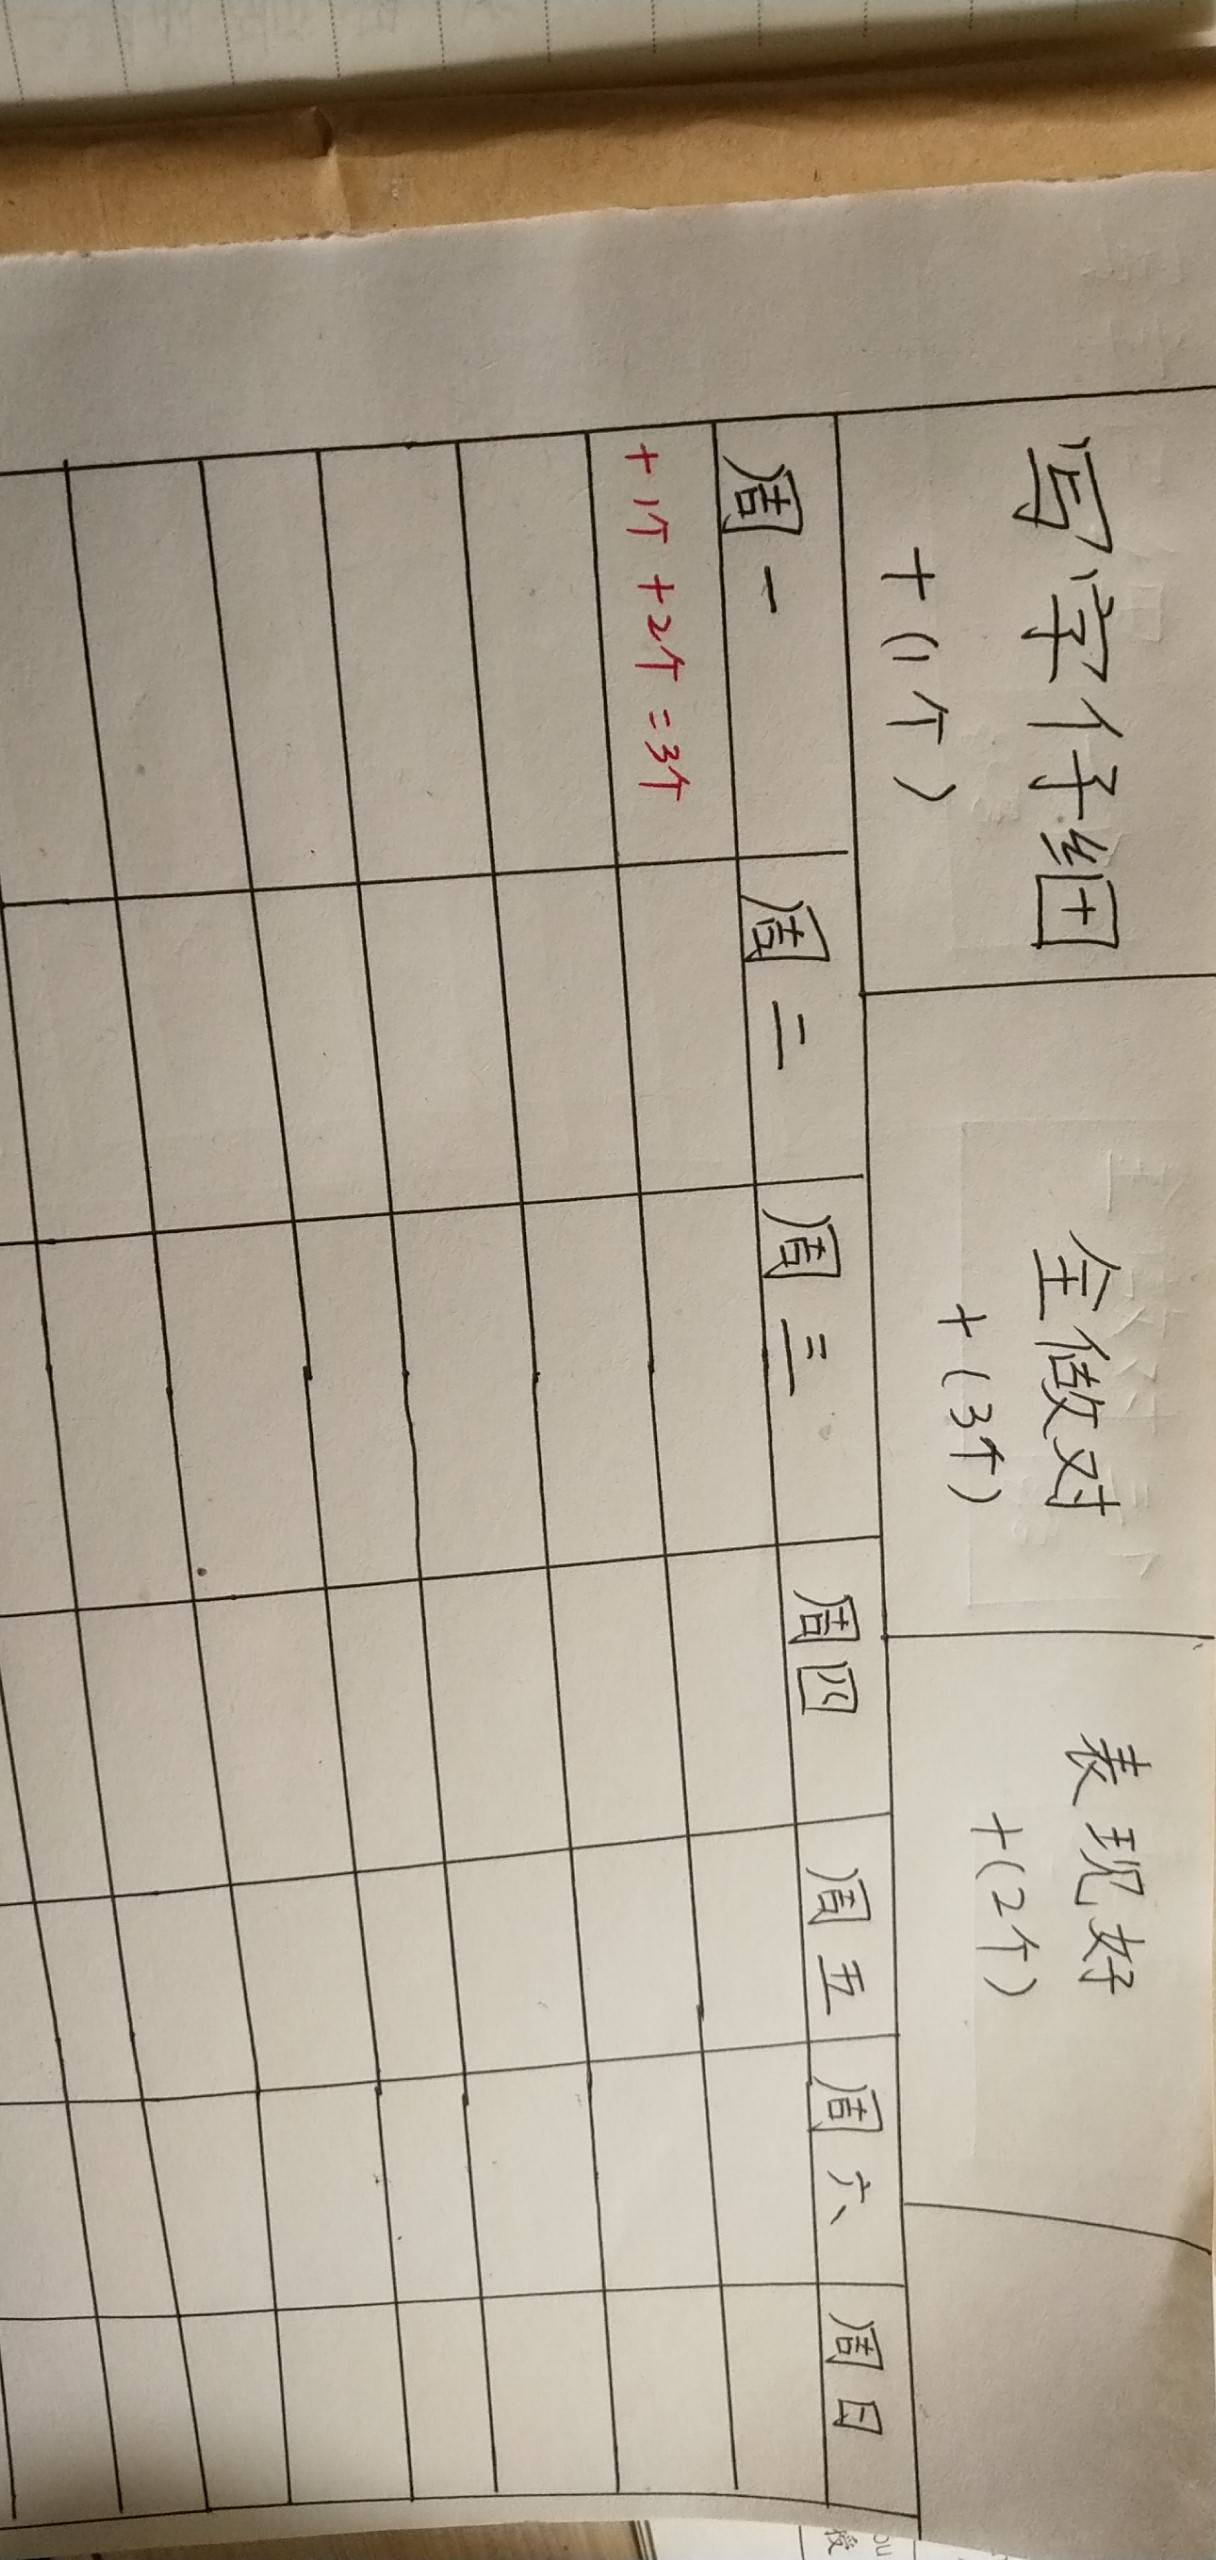 写字仔细 全做对 表现好
+(1个) +(3个) +(2个)
周一 周二 周三 周四 周五 周六 周日
+1个+2个=3个